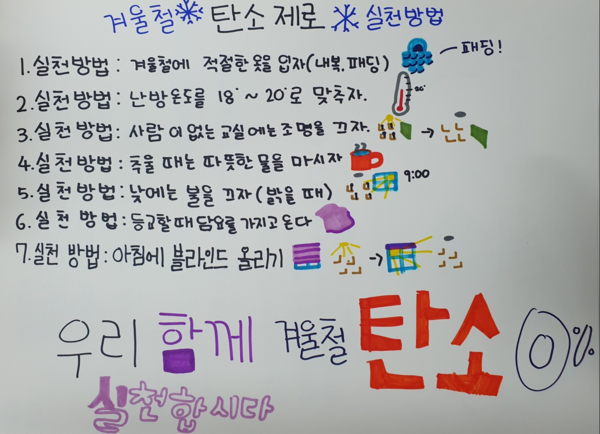 겨울철 탄소 제로 실천방법
1. 실천방법 : 겨울철에 적절한 옷을 입자(내복, 패딩)
패딩!
2. 실천방법 : 난방온도를 18°~20°로 맞추자.
20°
3. 실천방법 : 사람이 없는 교실에는 조명을 끄자.
4. 실천방법 : 추울 때는 따뜻한 물을 마시자
5. 실천방법 : 낮에는 불을 끄자(밝을 때)
9:00
6. 실천 방법 : 등교할 때 담요를 가지고 온다
7. 실천 방법 : 아침에 블라인드 올리기
우리 함께 겨울철 탄소 0%
실천합시다